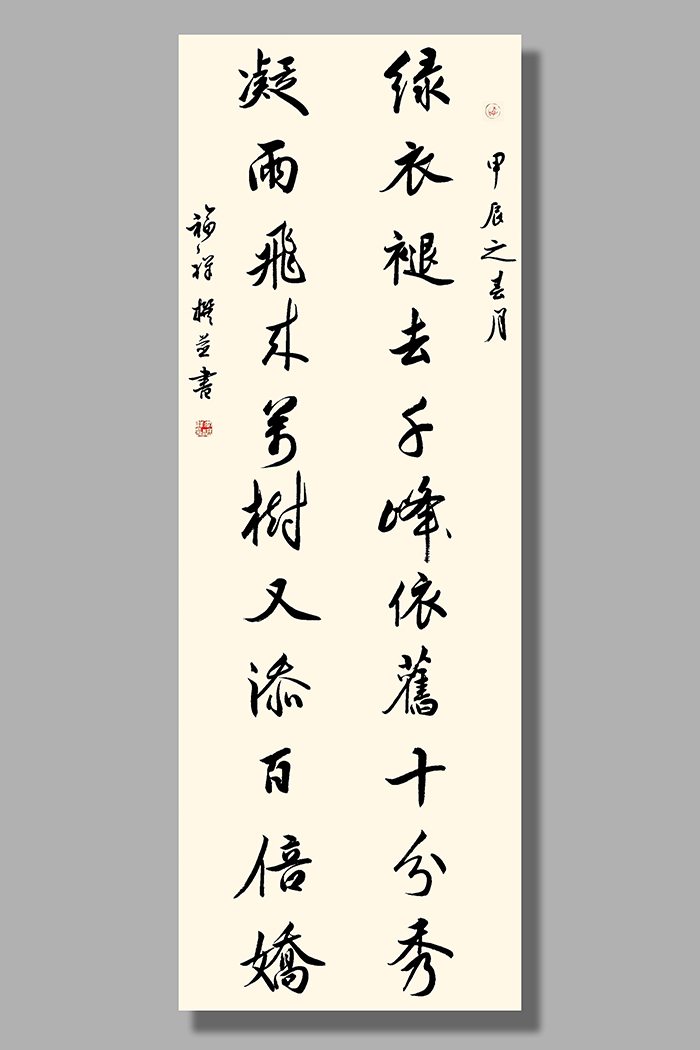 甲辰之春月
绿衣褪去千峰依舊十分秀
凝雨飛来萬樹又添百倍嬌
福祥撰并書